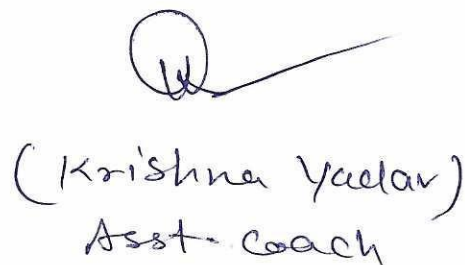 (Krishna Yadav)
Asst. Coach